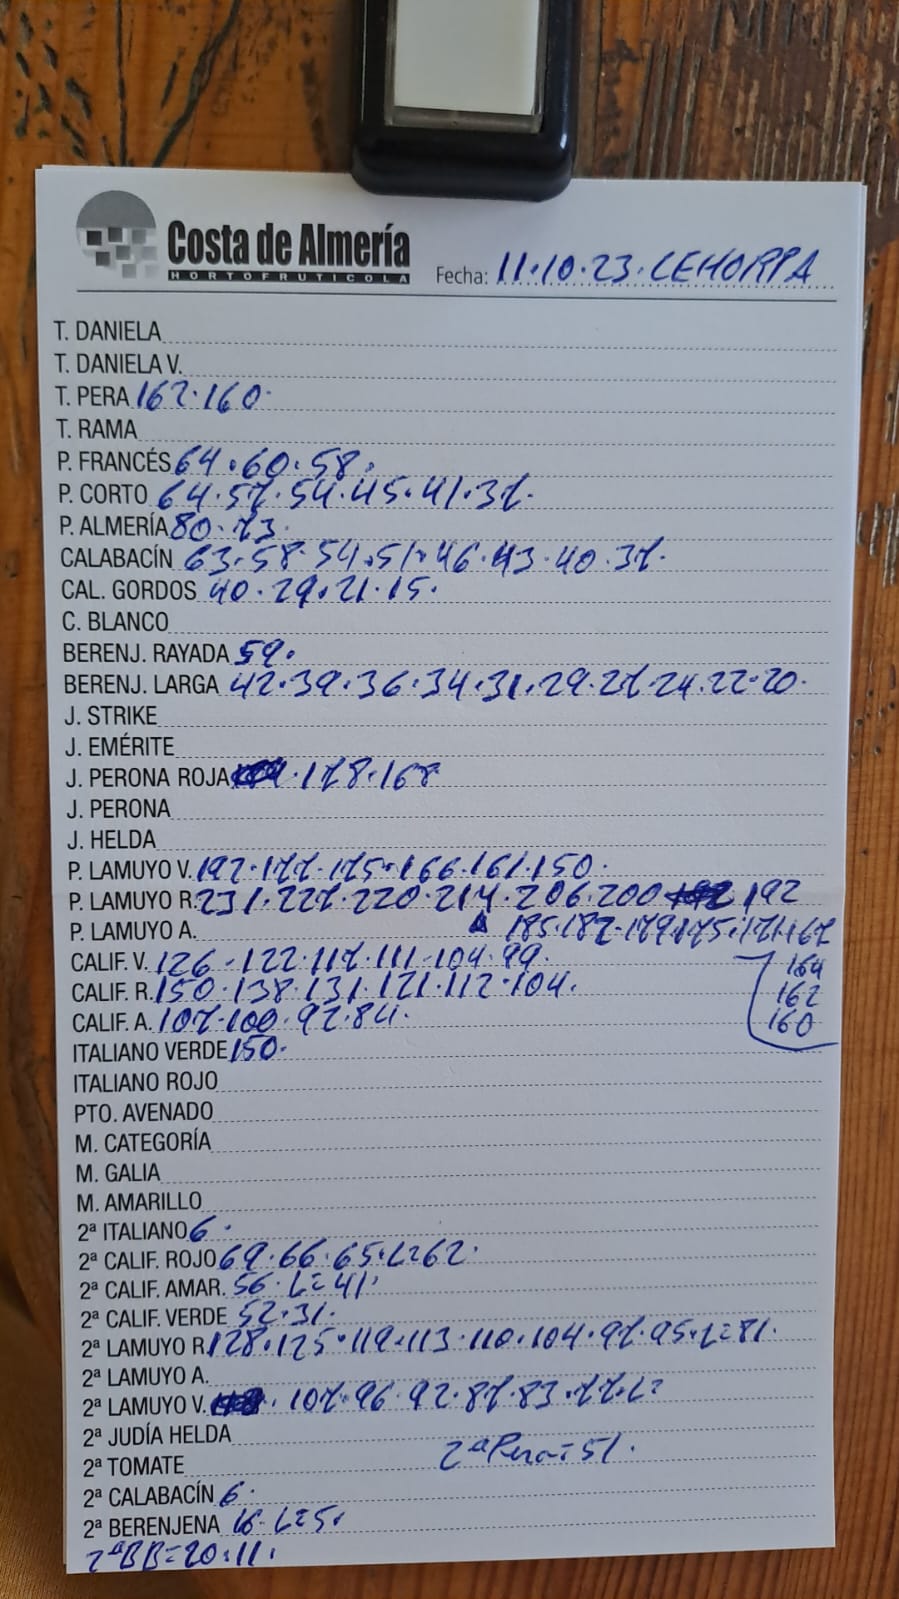 Costa de Almería
HORTOFRUTICOLA
Fecha: 11.10.23. CEHORPA
T. DANIELA
T. DANIELA V.
T. PERA 162.160.
T. RAMA
P. FRANCÉS 64.60.58.
P. CORTO 64.57.54.45.41.37.
P. ALMERÍA 80.73.
CALABACÍN 63.58.54.51.46.43.40.37.
CAL. GORDOS 40.29.21.15.
C. BLANCO
BERENJ. RAYADA 59.
BERENJ. LARGA 42.39.36.34.31.29.27.24.22.20.
J. STRIKE
J. EMÉRITE
J. PERONA ROJA .178.168
J. PERONA
J. HELDA
P. LAMUYO V. 192.177.175.166.161.150.
P. LAMUYO R. 231.227.220.214.206.200 192
P. LAMUYO A. 185.182.179.175.171.167
CALIF. V. 126.122.117.111.104.99. 164
CALIF. R. 150.138.131.121.112.104. 162
CALIF. A. 107.100.92.84. 160
ITALIANO VERDE 150.
ITALIANO ROJO
PTO. AVENADO
M. CATEGORÍA
M. GALIA
M. AMARILLO
2ª ITALIANO 6.
2ª CALIF. ROJO 69.66.65.L=62.
2ª CALIF. AMAR. 56.L=41.
2ª CALIF. VERDE 52.31.
2ª LAMUYO R. 128.125.119.113.110.104.97.95.L=81.
2ª LAMUYO A.
2ª LAMUYO V. 107.96.92.87.83.77.
2ª JUDÍA HELDA
2ª TOMATE 2ª Pera=51.
2ª CALABACÍN 6.
2ª BERENJENA 16.L=5.
2ªBB=20.11.